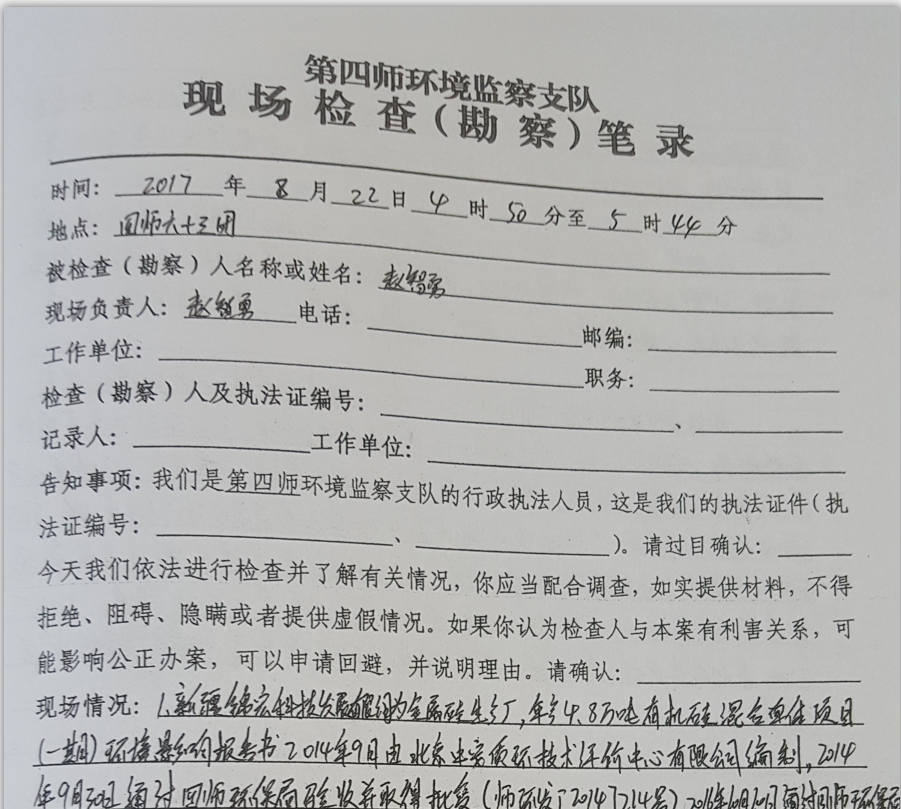 第四师环境监察支队
现场检查(勘察)笔录
时间: 2017 年 8 月 22 日 4 时 50 分至 5 时 44 分
地点: 四师六十三团
被检查(勘察)人名称或姓名: 赵智勇
现场负责人: 赵智勇 电话: 邮编:
工作单位: 职务:
检查(勘察)人及执法证编号: 、
记录人: 工作单位:
告知事项: 我们是第四师环境监察支队的行政执法人员, 这是我们的执法证件(执
法证编号: 、 )。请过目确认:
今天我们依法进行检查并了解有关情况, 你应当配合调查, 如实提供材料, 不得
拒绝、阻碍、隐瞒或者提供虚假情况。如果你认为检查人与本案有利害关系, 可
能影响公正办案, 可以申请回避, 并说明理由。请确认:
现场情况: 1.新疆锦宏科技发展 为金属硅生产厂, 年产4.8万吨有机硅混合单体项目
(一期)环境影响报告书2014年9月由北京中 环技术评价中心有限公司编制, 2014
年9月30日通过四师环保局验收并取得批复(师环发[2014]214号)